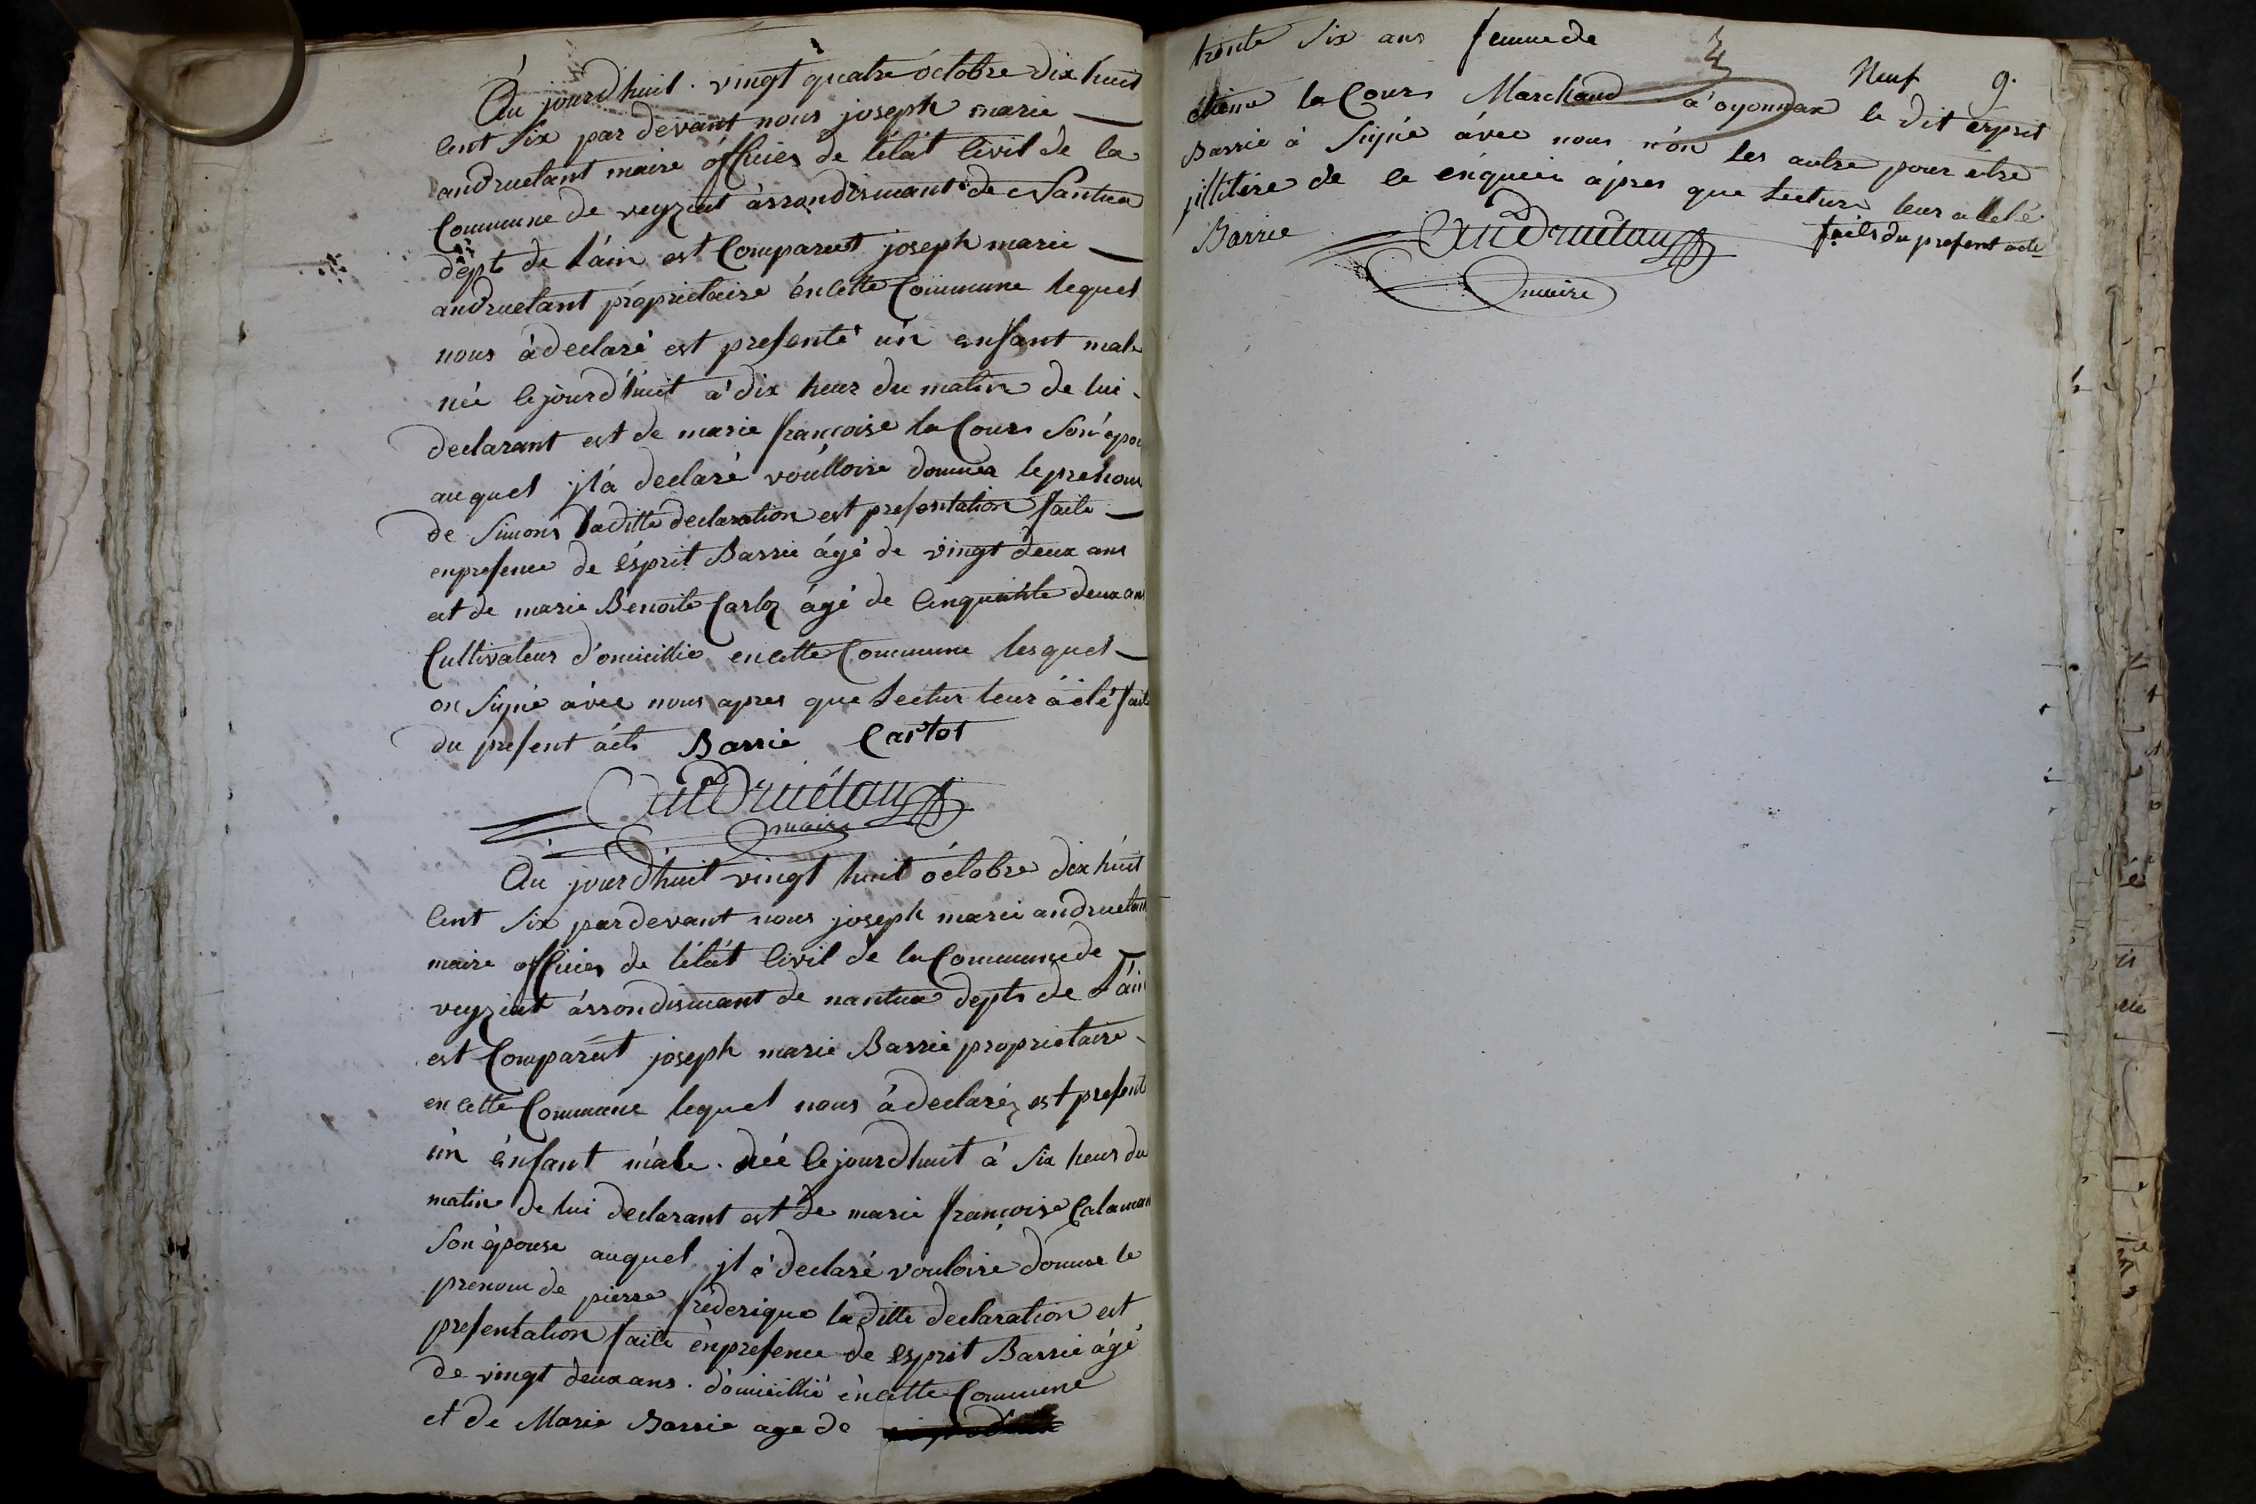 Au jourdhuit . vingt quatre octobre dix huit
cent six par devant nous joseph marie
andruetant maire officier de létat Civil de la
Commune de veyziat àrrondismant de Nantua
dépt de l'ain est Comparut joseph marie
andruetant propriétaire én cette Commune lequel
nous à declaré est presenté ún enfant male
néé cejourd'huit à dix heur du matin de lui
declarant est de marie françoise la Cour Son épou
auquel jl a declaré voúlloire donner le prenom
de Simons laditte declaration est presentation faite
en presence de ésprit Barrié ágé de vingt deux ans
et de marie Benoite Carloz ágé de Cinquante deux ans
Cultivateur d'omicillié en cette Commune lesquel
on Signé avéc nous apres que Lectur leur á été faite
du present ácte Barrié Cartot
Andruétant
maire
Au jourd'huit vingt huit óctobre dix húit
Cent Six par devant nous joseph marié andruetant
maire officier de l'état Civil de la Commune de
veyziat árrondismant de nantua depts de L'ain
est Comparút joseph marie Barrié propriétaire
en cette Commune lequel nous à declaréz est present
ún énfant mále . néé Cejourdhuit à Six heur du
matin de lui declarant est de marie françoise Calaman
Son épouse auquel jl a declaré vouloire donner le
prenom de pierre fréderique laditte declaration est
presentation faite én presence de ésprit Barrié ágé
de vingt deux ans . domicillié én cette Commune
et de Marie Barrié age de
trente Six ans femme de
4
Neuf 9.
la Cour Marchand à oyonnax le dit ésprit
Barrié à Signé ávec nous nón les autre pour etre
jllitére de ce énquéri ápres que Lecture leur a eté
faite du present acte
Barrié Andruétant
maire